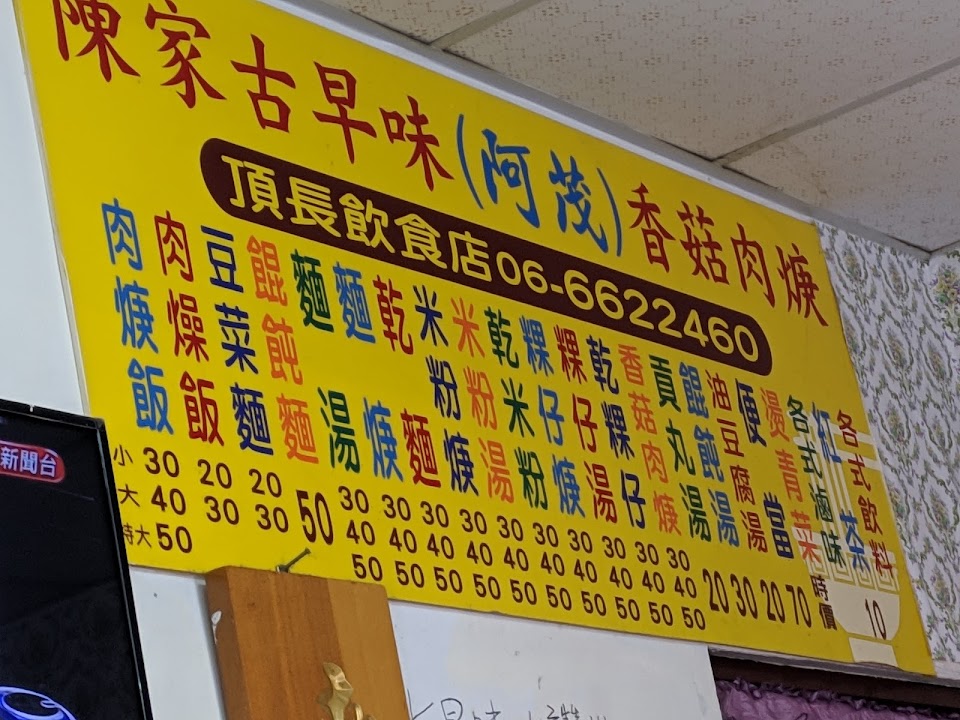 陳家古早味(阿茂)香菇肉焿
頂長飲食店06-6622460
肉焿飯
肉燥飯
豆菜麵
餛飩麵
麵湯
麵焿
乾麵
米粉焿
米粉湯
乾米粉
粿仔焿
粿仔湯
乾粿仔
香菇肉焿
貢丸湯
餛飩湯
油豆腐湯
便當
燙青菜
各式滷味
紅茶
各式飲料
小 30 20 20 50 30 30 30 30 30 30 30 30 30 30
大 40 30 30 40 40 40 40 40 40 40 40 40 40
特大 50 50 50 50 50 50 50 50 50 50 50 20 30 20 70 時價 10
新聞台